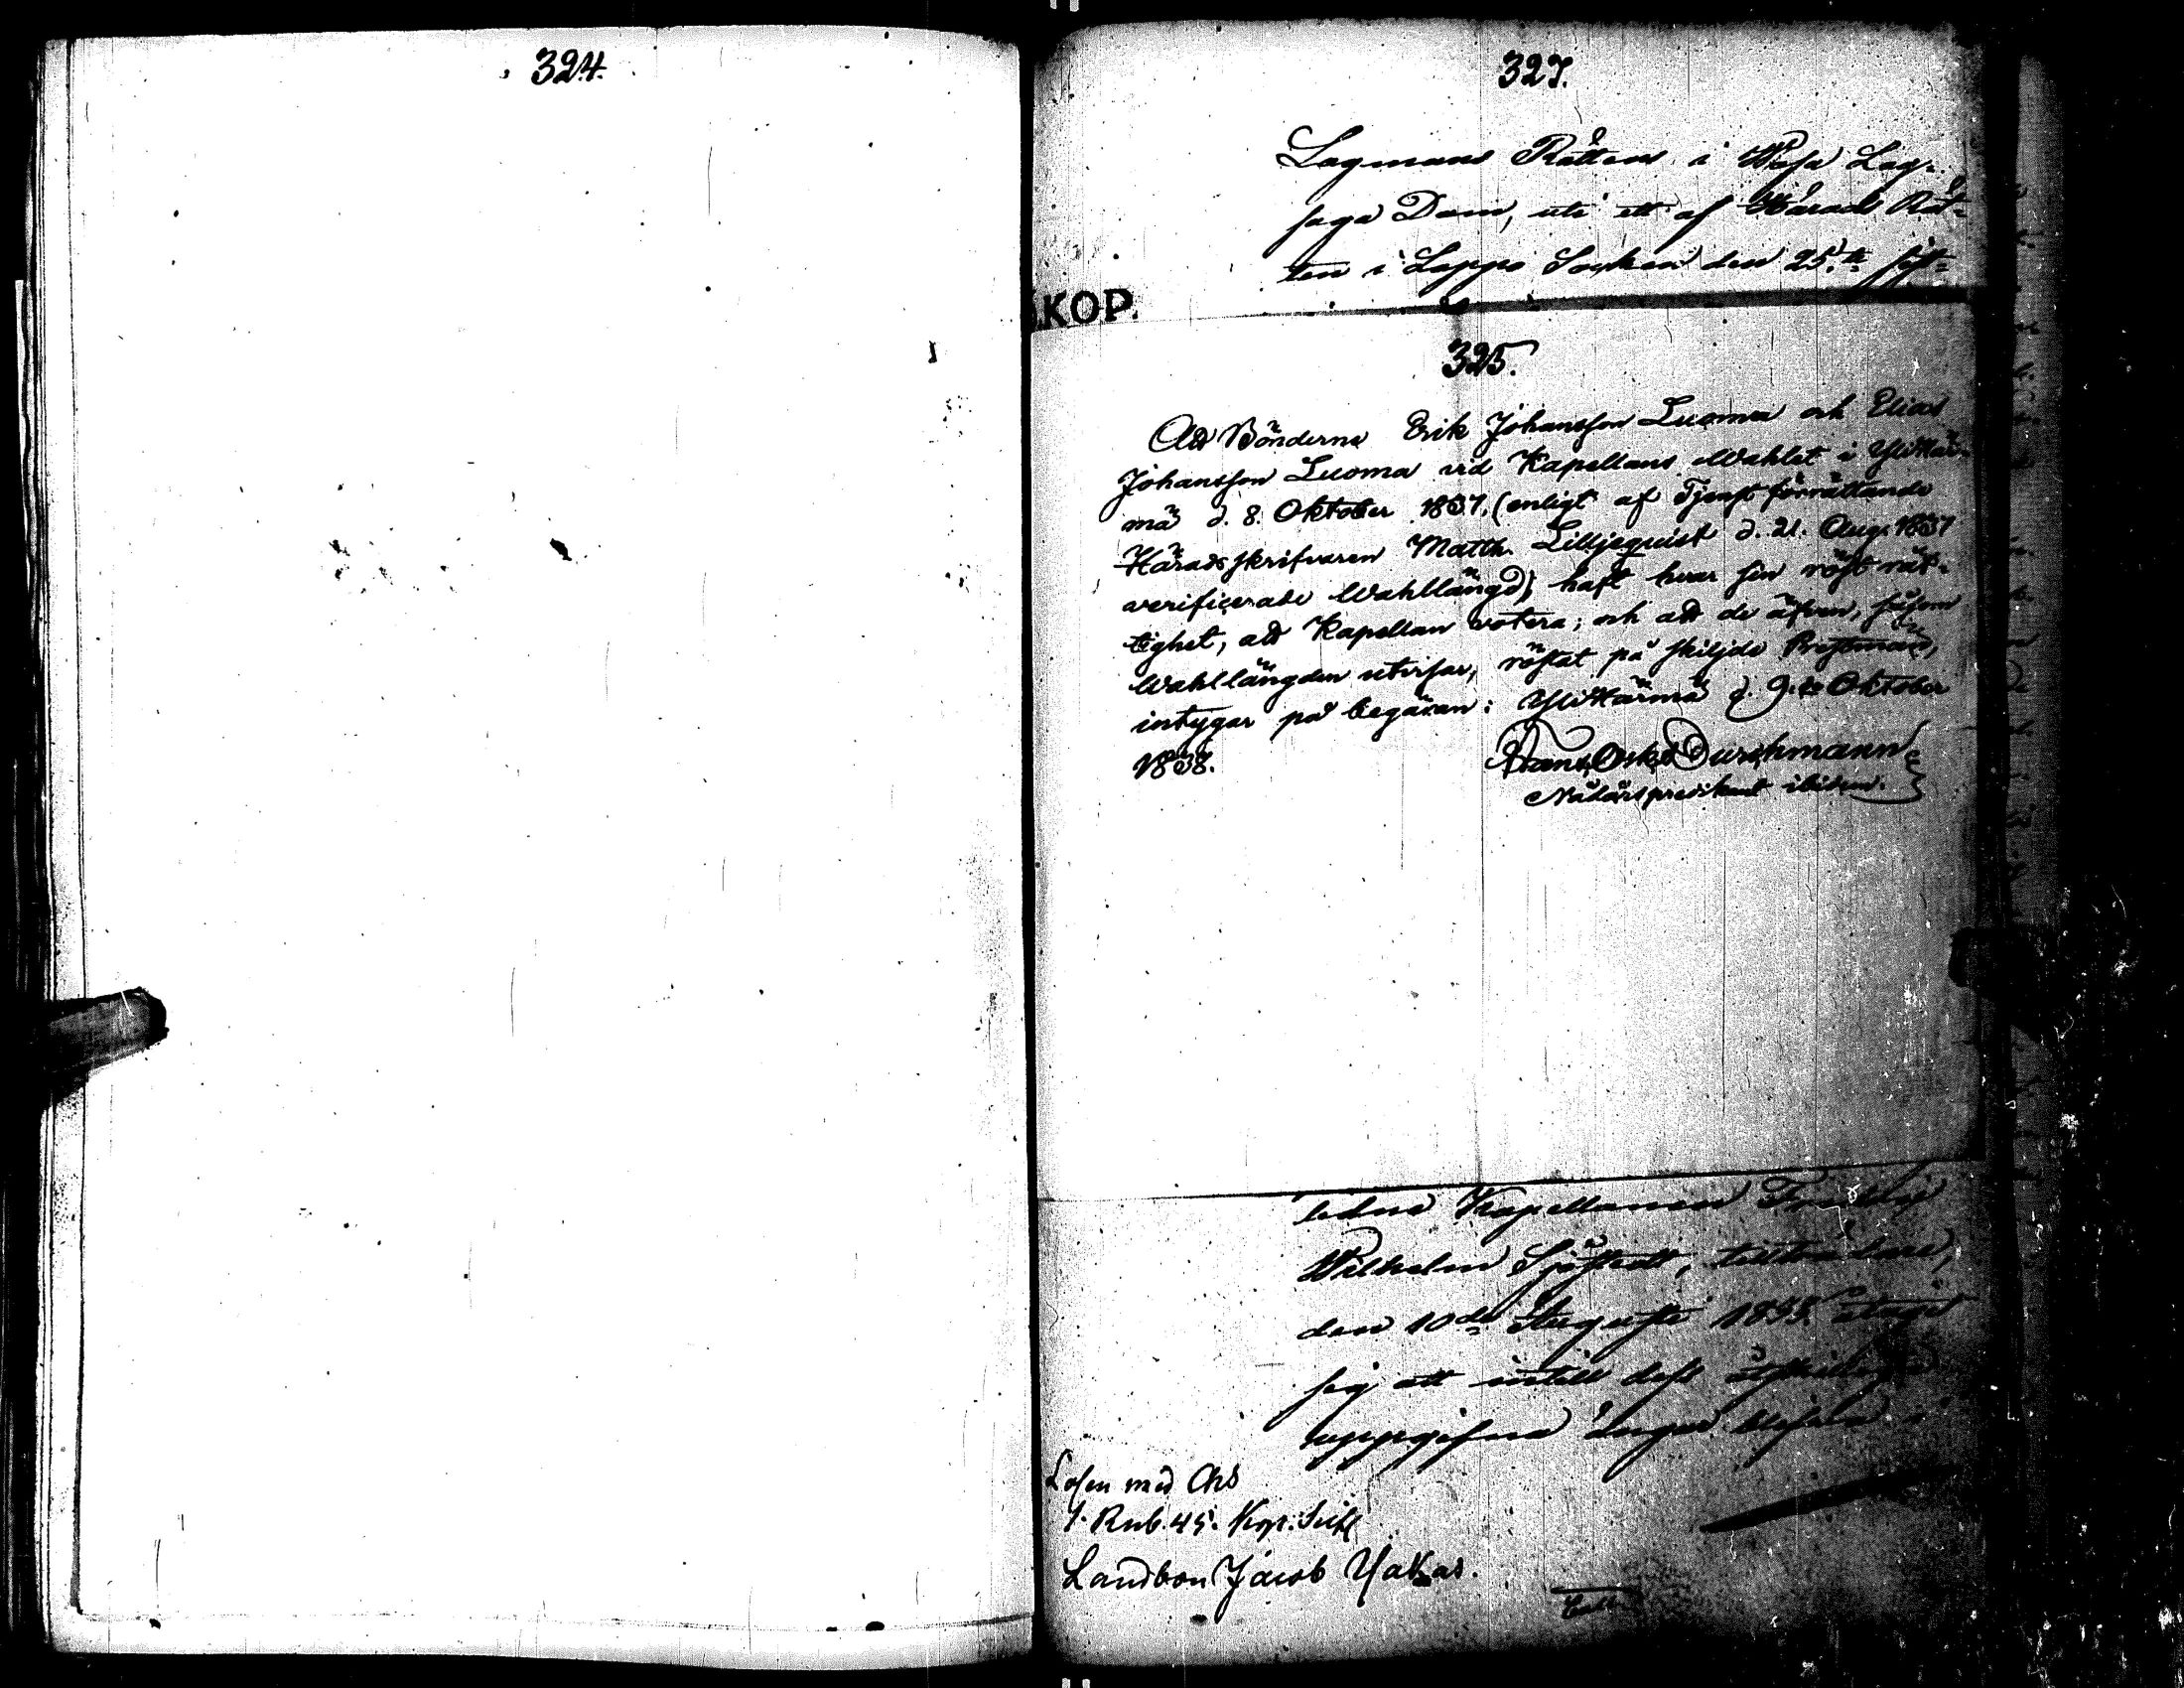 324.
327.
Lagmans Rättens i Wasa Lag-
saga Dom, uti ett af Härads Rät-
ten i Lappo Socken den 25:te Sept-
KOP.
325.
Att Bönderna Erik Johansson Luoma och Elias
Johansson Luoma vid Kapellans Wahlet i YliHär-
mä d. 8. Oktober 1837, (enligt af Tjenstförrättande
Häradsskrifvaren Matth. Lilljequist d. 21. Aug. 1837
verificerade Wahllängd) haft hvar sin röst rät-
tighet, att Kapellan votera; och att de äfven, såsom
Wahllängden utvisar, röstat på skiljde Prestmän,
intygar på begäran: YliHärmä d. 9:de Oktober
1838. Frans Osk. Durchmann
Nådårspredikant ibidem.
ledne Kapellanen Fredrik
Wilhelm Sjöstedt, tillträdare,
den 10de Augusti 1833 åtagit
sig att intill dess
uppgifne ängar
Lösen med Chs
1. Rub. 45. Kop. Silf
Landbon Jacob Yakas.